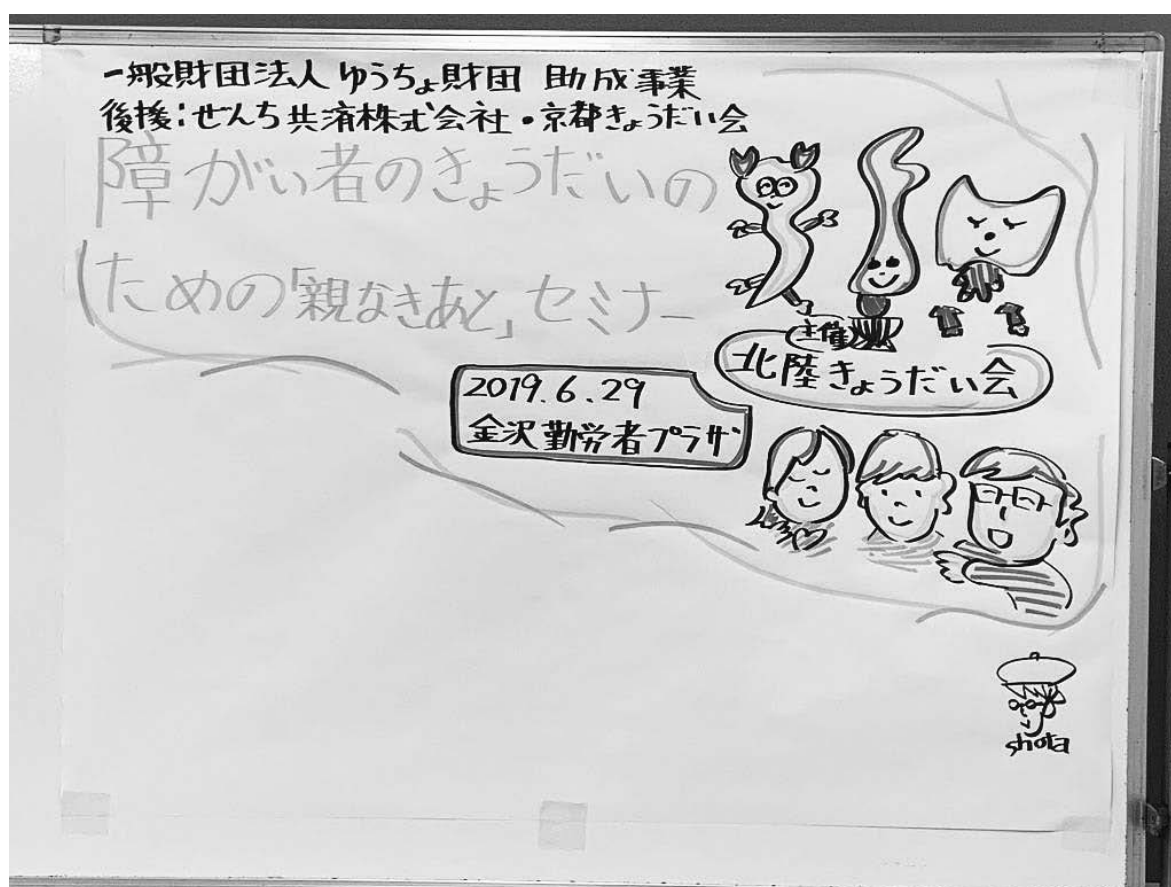 一般財団法人 ゆうちょ財団 助成事業
後援:ぜんち共済株式会社・京都きょうだい会
障がい者のきょうだいの
ための「親なきあと」セミナー
主催
北陸きょうだい会
2019.6.29
金沢勤労者プラザ
shota